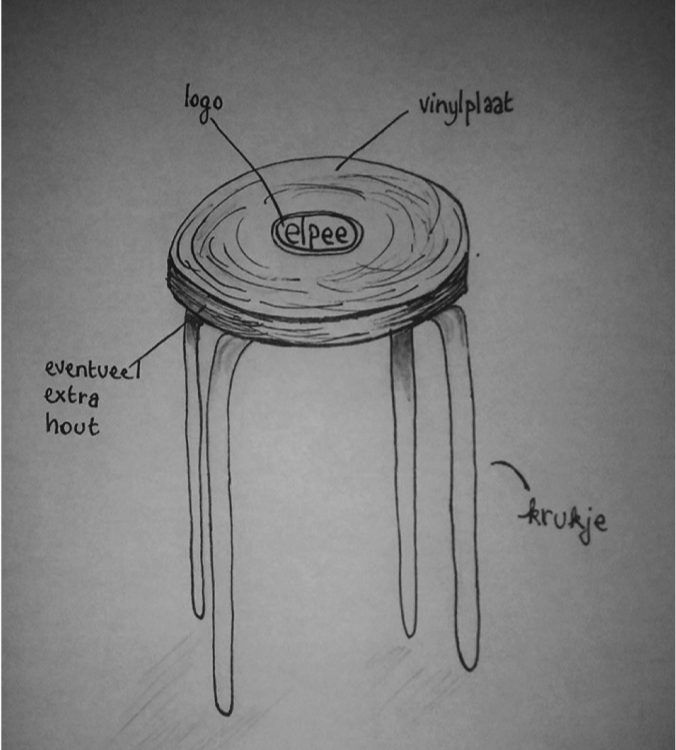 logo
vinylplaat
elpee
eventueel
extra
hout
krukje